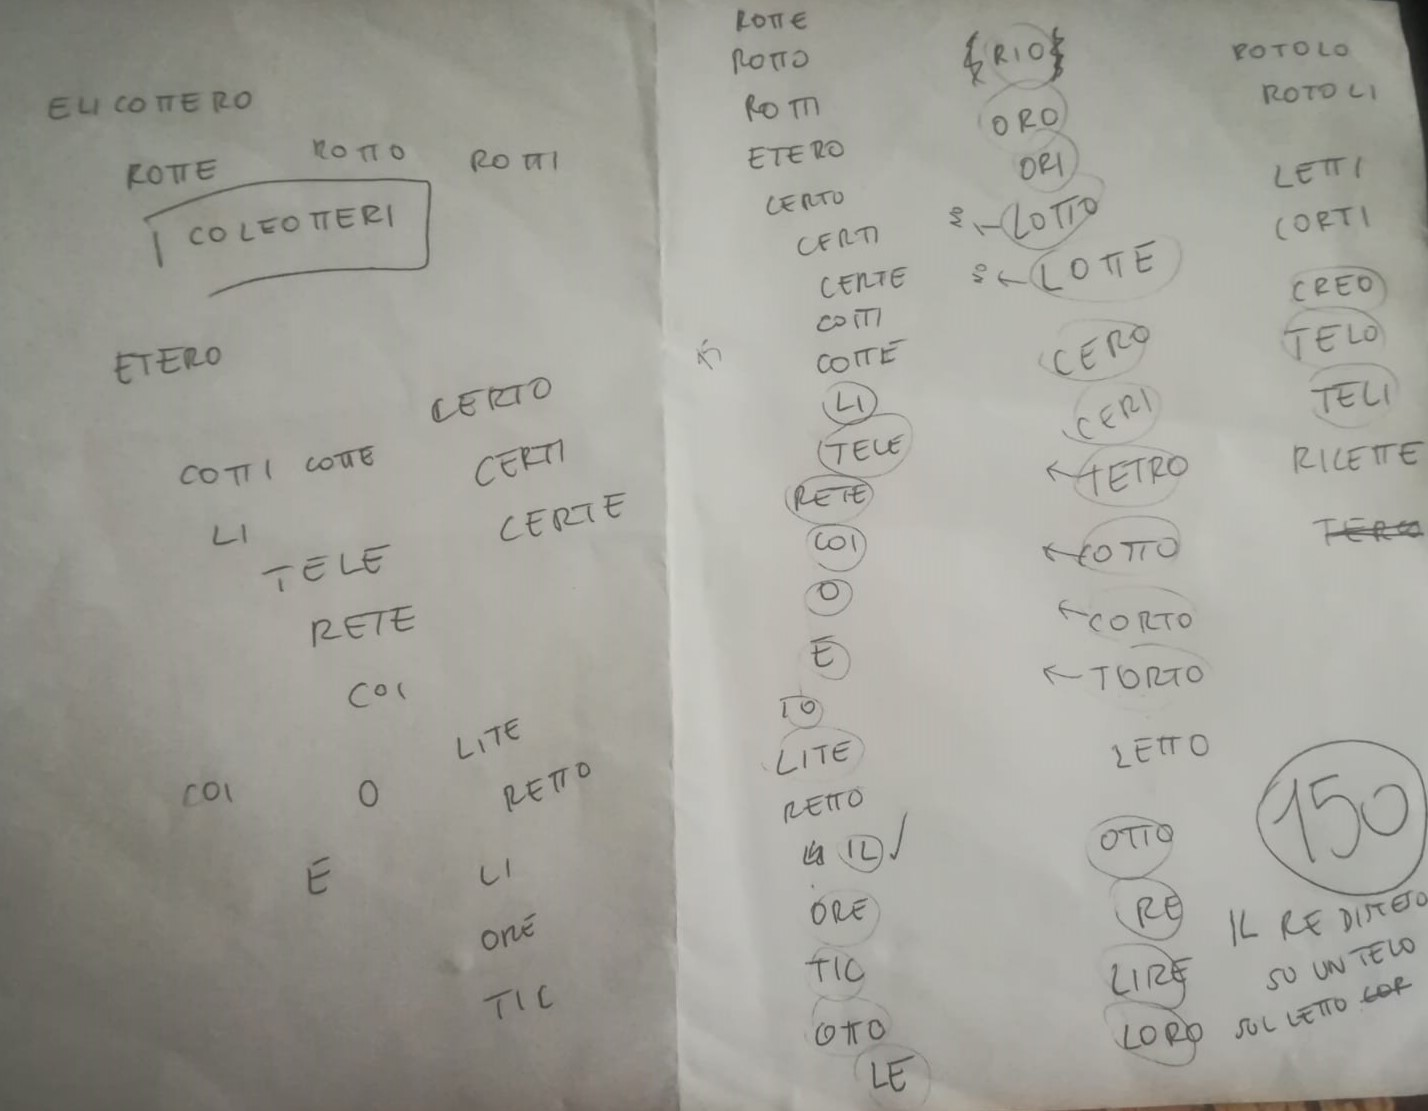 ELICOTTERO
ROTTE ROTTO ROTTI
COLEOTTERI
ETERO
CERTO
COTTI COTTE CERTI
LI CERTE
TELE
RETE
COI
LITE
COI O RETTO
E LI
ORE
TIC
ROTTE
ROTTO
ROTTI
ETERO
CERTO
CERTI
CERTE
COTTI
COTTE
LI
TELE
RETE
COI
O
E
IO
LITE
RETTO
IL
ORE
TIC
OTTO
LE
RIO
ORO
ORI
LOTTO
LOTTE
CERO
CERI
TETRO
COTTO
CORTO
TORTO
LETTO
OTTO
RE
LIRE
LORO
ROTOLO
ROTOLI
LETTI
CORTI
CREO
TELO
TELI
RICETTE
150
IL RE DISTESO
SU UN TELO
SUL LETTO